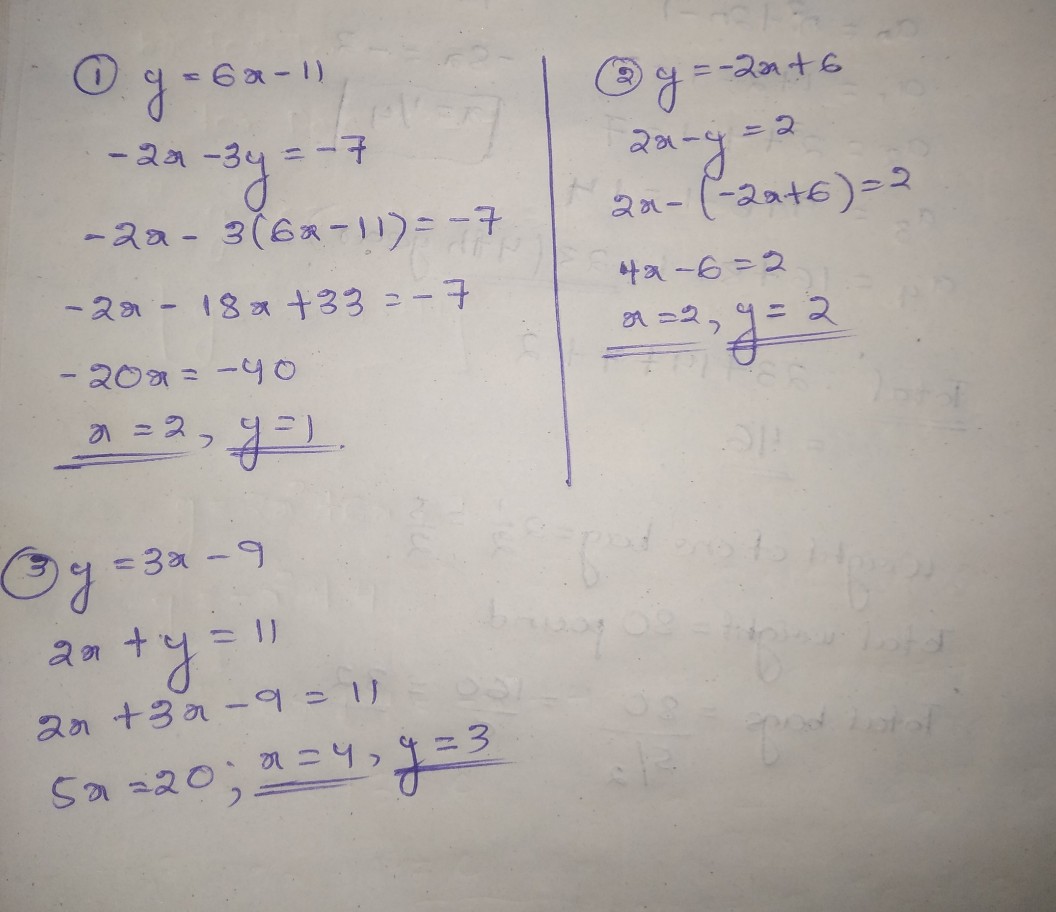 ① y = 6x - 11
-2x - 3y = -7
-2x - 3(6x - 11) = -7
-2x - 18x + 33 = -7
-20x = -40
x = 2, y = 1
② y = -2x + 6
2x - y = 2
2x - (-2x + 6) = 2
4x - 6 = 2
x = 2, y = 2
③ y = 3x - 9
2x + y = 11
2x + 3x - 9 = 11
5x = 20; x = 4, y = 3